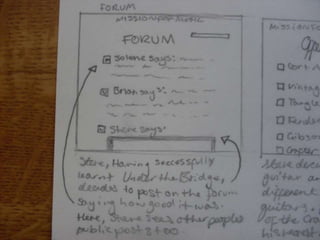 FORUM
MISSIONFORMUSIC
FORUM
Solene says:
Brian says:
Steve says:
Steve, Having successfully
learnt Under the Bridge,
decides to post on the forum
saying how good it was.
Here, Steve sees other peoples
public posts too.
MISSIONFO
Guitar and
different
guitars.